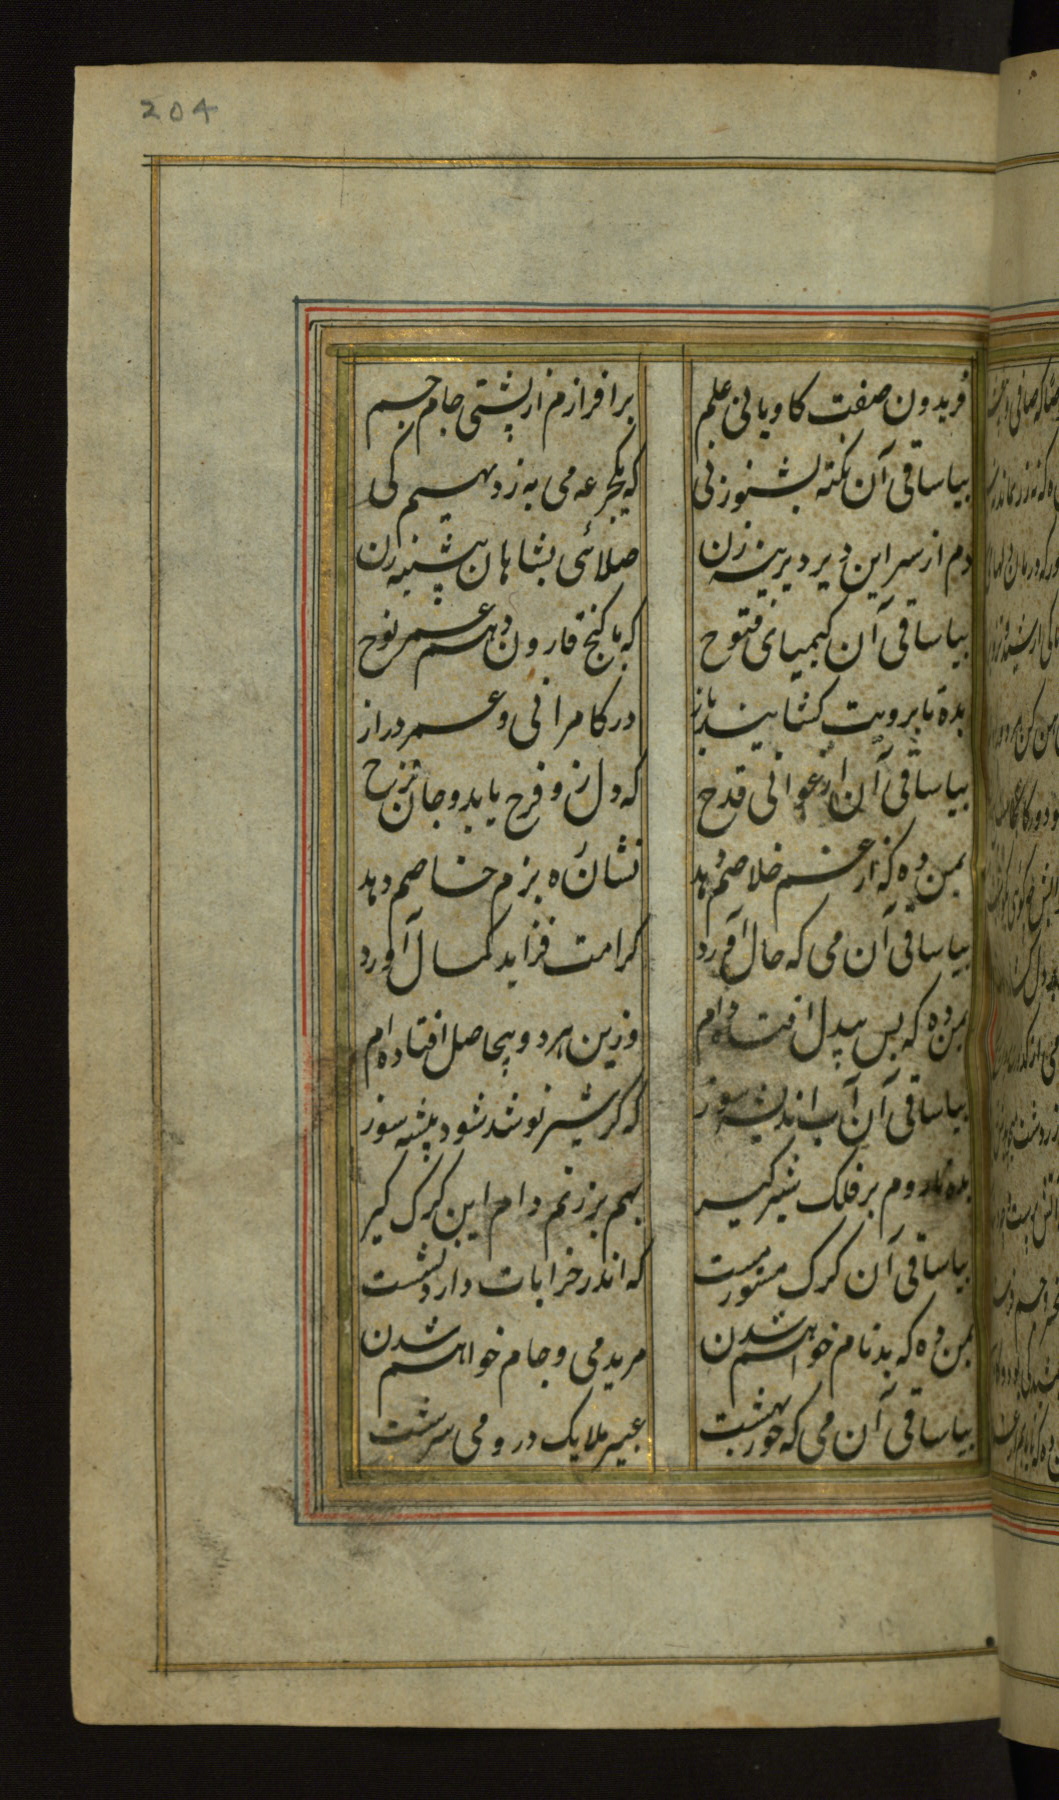 204
فریدون صفت کاویانی علم
برافرازم از پشتی جام جم
بیا ساقی آن نکته بشنو ز نی
که یکجرعه می به ز دیهیم کی
دم از سر این دیر دیرینه زن
صلائی بشاهان پیشینه زن
بیا ساقی آن کیمیای فتوح
که با گنج قارون دهد عمر نوح
بده تا برویت گشایند باز
در کامرانی و عمر دراز
بیا ساقی آن ارغوانی قدح
که دل زو فرح یابد و جان ترح
بمن ده که از غم خلاصم دهد
نشان ره بزم خاصم دهد
بیا ساقی آن می که حال آورد
کرامت فزاید کمال آورد
بمن ده که بس بیدل افتاده ام
وزین هر دو بیحاصل افتاده ام
بیا ساقی آن آب اندیشه سوز
که گر شیر نوشد شود بیشه سوز
بده تا روم بر فلک شیر گیر
بهم بر زنم دام این گرگ گیر
بیا ساقی آن گرگ مستور مست
که اندر خرابات دارد نشست
بمن ده که بدنام خواهم شدن
مرید می و جام خواهم شدن
بیا ساقی آن می که حور بهشت
عبیر ملایک در و می سرشت